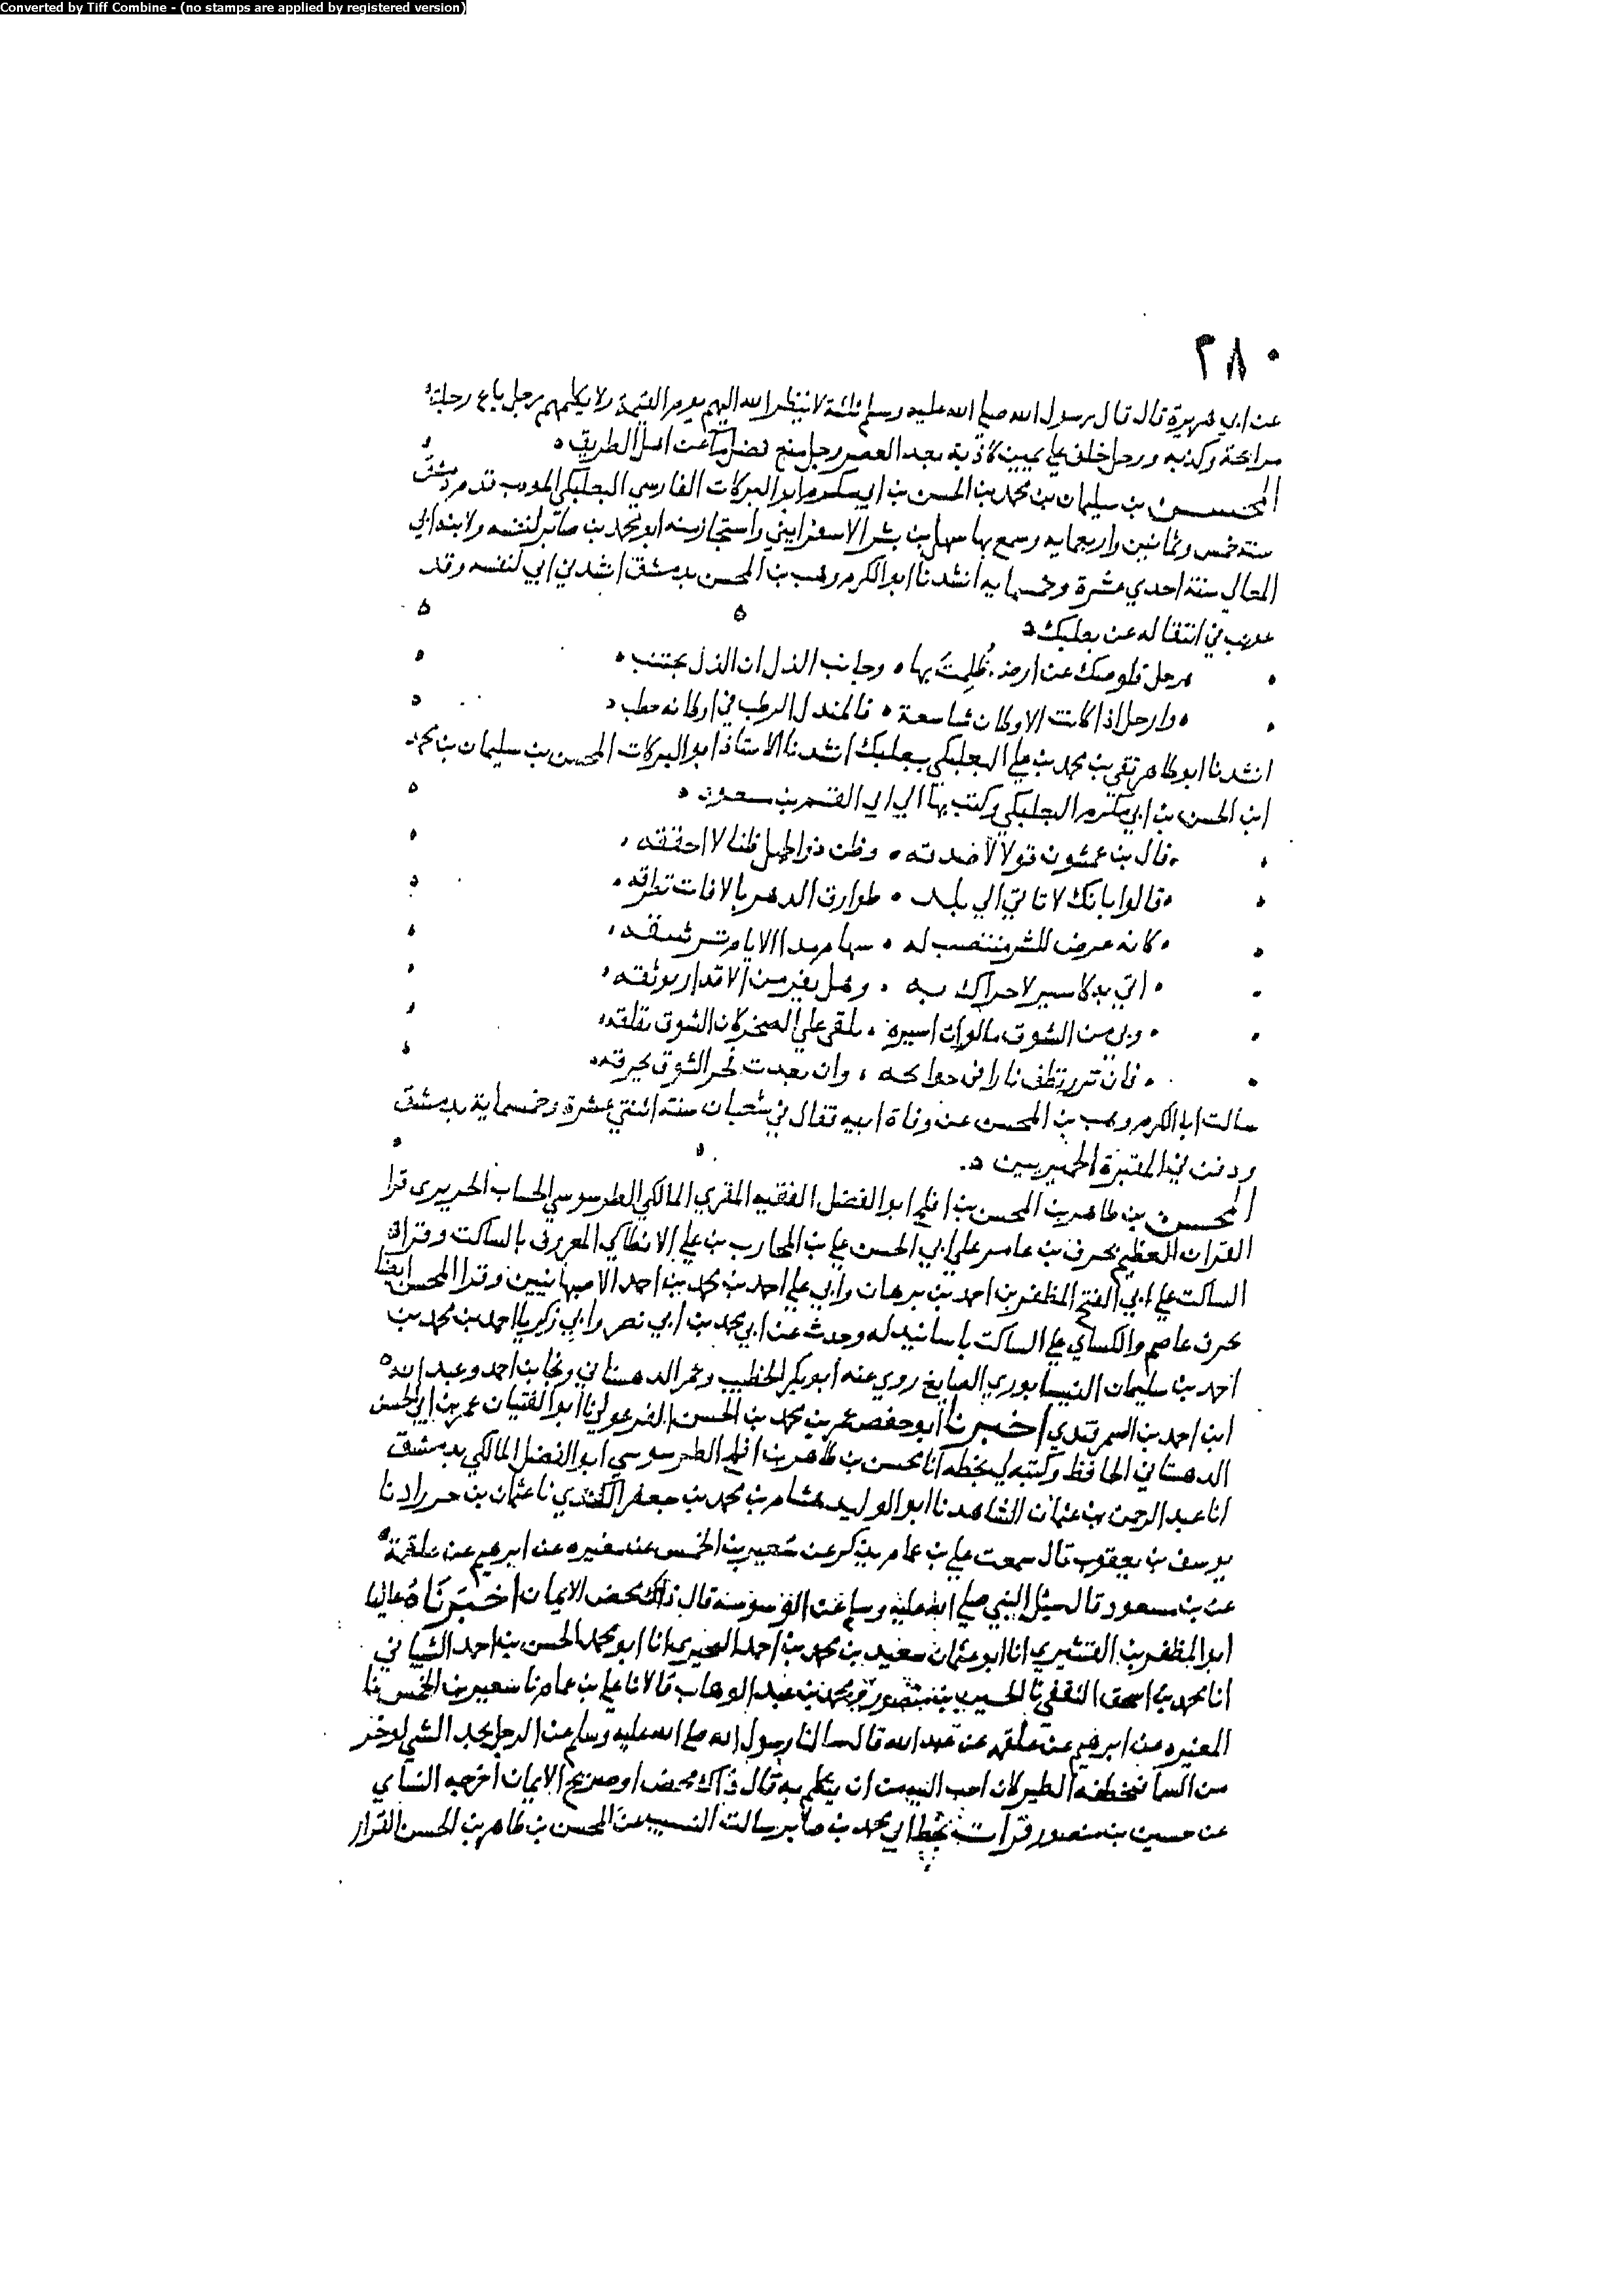 Converted by Tiff Combine - (no stamps are applied by registered version)
٣٨٠
عن ابي هريرة قال قال رسول الله صلى الله عليه وسلم ثلثة لا ينظر الله اليهم يوم القيمة ولا يكلمهم رجل باع رحلته
مرابحة وكذبه ورجل حلف على يمين كاذبة بعد العصر ورجل منع فضل ما عن اهل الطريق
المحسن بن سليمان بن محمد بن الحسن بن ابي مكرم ابو البركات الفارسي البعلبكي المودب قدم دمشق
سنة خمس وثمانين واربعمايه وسمع بها سهل بن بشر الاسفرايني واستجاز منه ابو محمد بن صابر لنفسه ولابنه ابي
المعالي سنة احدي عشرة وخمسمايه انشدنا ابو الكرم وهب بن المحسن بدمشق انشدني ابي لنفسه وقد
عوتب في انتقاله عن بعلبك
رحل قلوصك عن ارض ظُلِمتَ بها وجانب الذل ان الذل يجتنب
وارحل اذا كانت الاوطان شاسعة فالمندل الرطب في اوطانه حطب
انشدنا ابو طاهر تقي بن محمد بن علي البعلبكي ببعلبك انشدنا الاستاذ ابو البركات المحسن بن سليمان بن محمد
ابن الحسن بن ابي مكرم البعلبكي وكتب بها الي ابي القسم بن
قال بن قولا لا وظن ذو الجهل ظنا لا احققه
وقالوا بانك لا تاتي الي بلد طوارق الدهر بالافات تطرقه
كانه عرض للشر منتصب له سهام الايام ترشقه
اني به كاسير لا حراك به وهل يفر من الاقدار موثقه
وبي من الشوق ما لو ان اسيره يلقى على الصخر كان الشوق يقلقه
فان تطف نارا في جوانحه وان بعدت فحر الشوق يحرقه
سالت ابا الكرم وهب بن المحسن عن وفاة ابيه فقال في شعبان سنة اثنتي عشرة وخمسماية بدمشق
ودفن في المقبرة الحميريين
المحسن بن طاهر بن المحسن بن افلح ابو الفضل الفقيه المقري المالكي الطرسوسي الحريري قرا
القران العظيم بحرف بن عامر علي ابي الحسن علي بن المحارب بن علي الانطاكي المعروف بالساكت وقرا
الساكت علي ابي الفتح المظفر بن احمد بن برهان وابي علي احمد بن محمد بن احمد الاصبهانيين وقرا المحسن ايضا
بحرف عاصم والكساي علي الساكت باسانيد له وحدث عن ابي محمد بن ابي نصر وابي زكريا احمد بن محمد بن
احمد بن سليمان النيسابوري الصايغ روي عنه ابو بكر الخطيب وعمر الدهستاني ونجا بن احمد وعبد الله
ابن احمد بن السمرقندي اخبرنا ابو حفص عمر بن محمد بن الحسن الفرغولي نا ابو الفتيان عمر بن ابي الحسن
الدهستاني الحافظ وكتبه لي بخطه انا محسن بن طاهر بن افلح الطرسوسي ابو الفضل المالكي بدمشق
انا عبد الرحمن بن عثمان الشاهد نا ابو الوليد هشام بن محمد بن جعفر الكندي نا عثمان بن خرزاد نا
يوسف بن يعقوب قال سمعت علي بن عامر عن سعير بن الخمس عن مغيره عن ابرهيم عن علقمة
عن بن مسعود قال سيل النبي صلي الله عليه وسلم عن الوسوسه قال ذاك محض الايمان اخبرناه عاليا
ابو المظفر بن القشيري انا ابو عثمان سعيد بن محمد بن احمد البحيري انا ابو محمد الحسن بن احمد الشيباني
انا محمد بن اسحق الثقفي نا الحسين بن منصور ومحمد بن عبد الوهاب قالا نا علي بن عامر نا سعير بن الخمس نا
المغيره عن ابرهيم عن علقمه عن عبد الله قال سالنا رسول الله صلي الله عليه وسلم عن الرجل يجد الشي لو خر
من السما فتخطفه الطير كان احب اليه من ان يتكلم به قال ذاك محض او صريح الايمان اخرجه النساي
عن حسين بن منصور قرات بخط ابي محمد بن صابر سالت النسيب عن المحسن بن طاهر بن المحسن القزاز